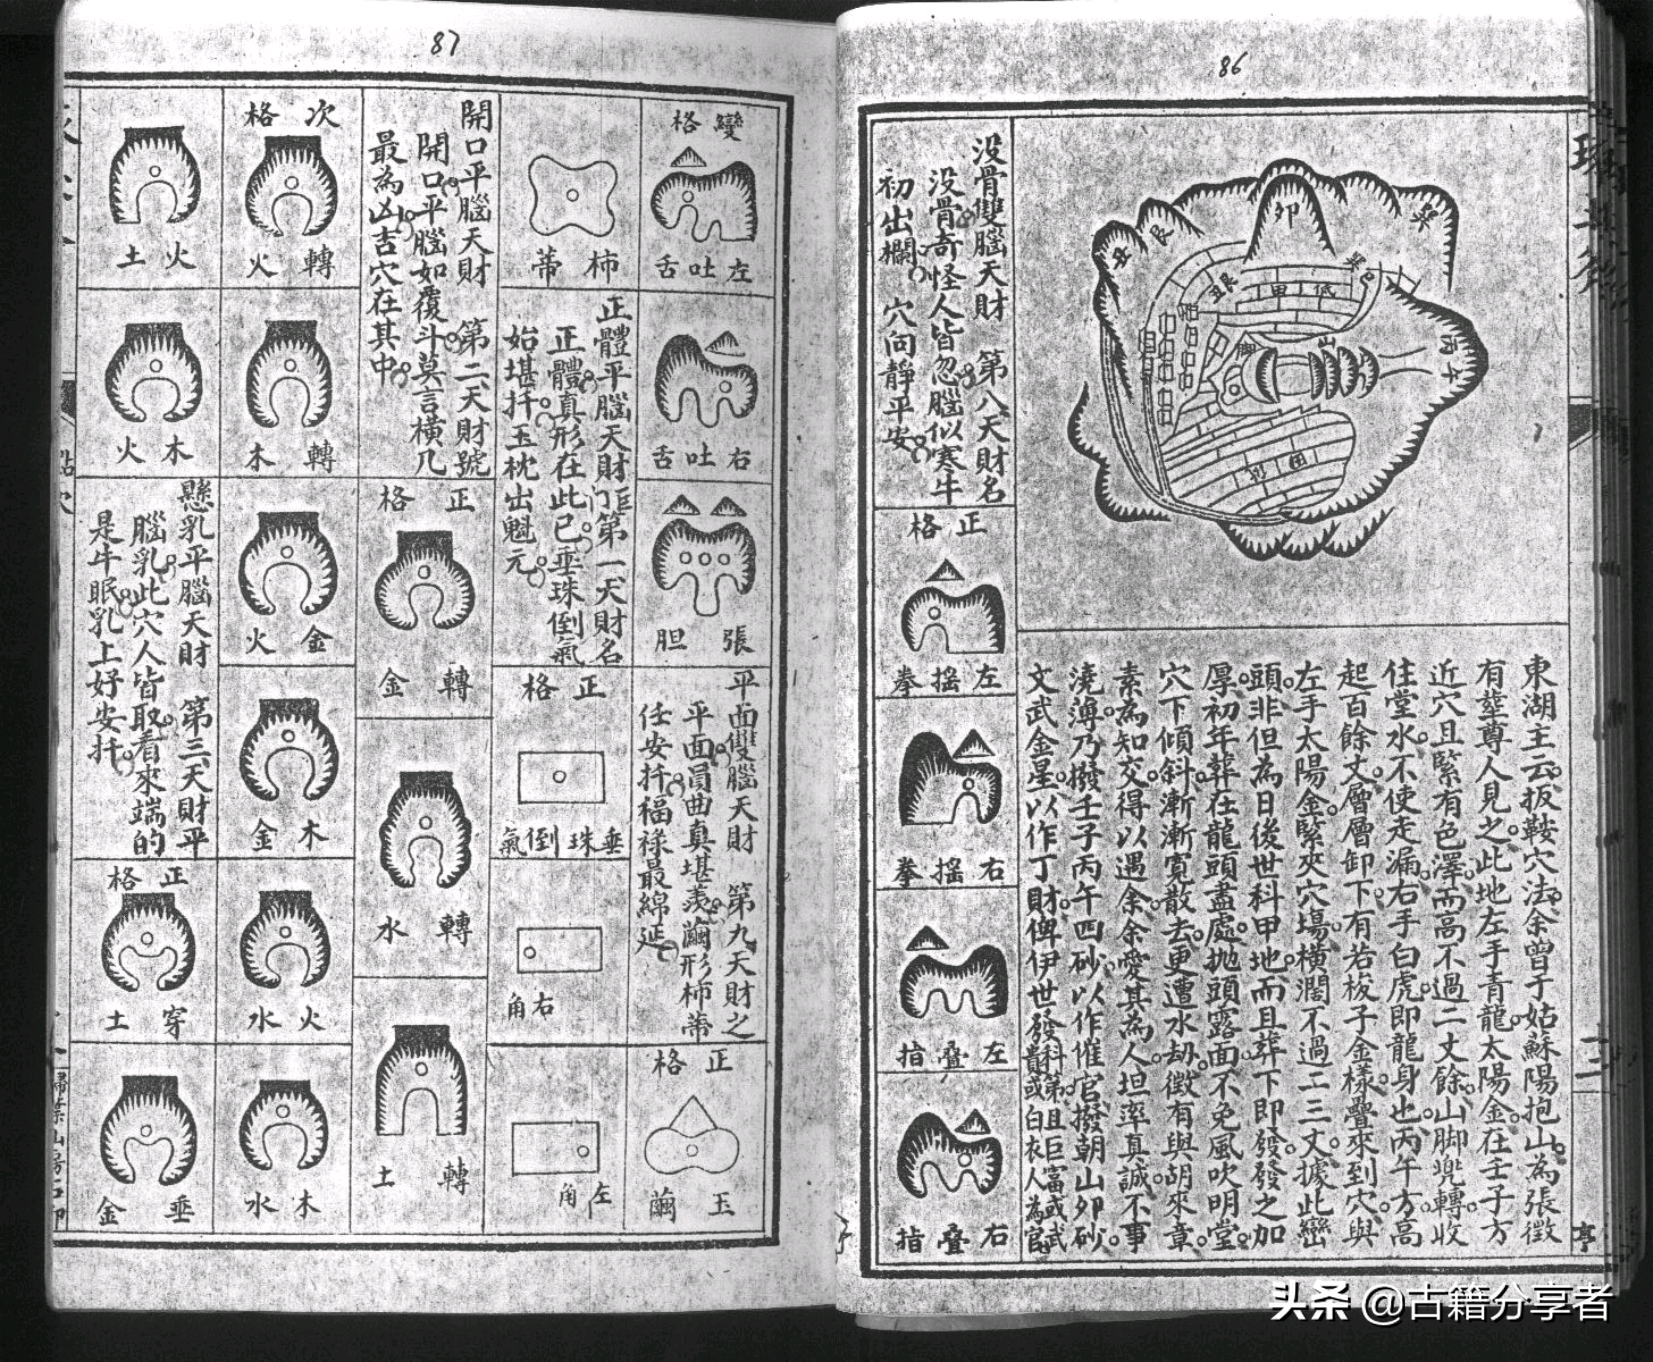 86
卯
巽
艮
丑
艮丑
巽巳
低
田
丙午
脚
山
田
東湖主云扳鞍穴法余曾于姑蘇陽抱山為張徵
有塟尊人見之此地左手青龍太陽金在壬子方
近穴且緊有色澤而高不過二丈餘山脚兠轉收
住堂水不使走漏右手白虎即龍身也丙午方高
起百餘丈層層卸下有若梭子金樣疊來到穴與
左手太陽金緊夾穴塲橫濶不過二三丈據此巒
頭非但為日後世科甲地而且葬下即發發之加
厚初年葬在龍頭盡處抛頭露面不免風吹明堂
穴下傾斜漸漸寬散去更遭水劫徴有與胡來章
素為知交得以遇余余愛其為人坦率真誠不事
澆薄乃撥壬子丙午四砂以作催官撥朝山夘砂
文武金星以作丁財俾伊世發科第且巨富或武
貴或白衣人為官
没骨雙腦天財　第八天財名
没骨奇怪人皆忽腦似寒牛
初出欄　穴向靜平安
正格
左摇拳
右摇拳
左疊指
右疊指
87
變格
左吐舌
右吐舌
張胆
平面雙腦天財　第九天財之
平面員曲真堪羨繭形柿蒂
任安扦福祿最綿延
正格
玉繭
柿蒂
正體平腦天財　第一天財名
正體真形在此已垂珠倒氣
始堪扦玉枕出魁元
正格
垂珠倒氣
右角
左角
開口平腦天財　第二天財號
開口平腦如覆斗莫言橫几
最為凶吉穴在其中
正格
轉金
轉水
轉土
次格
轉火
轉木
金火
木金
火水
木水
火土
木火
懸乳平腦天財　第三天財平
腦乳此穴人皆取看來端的
是牛眠乳上好安扦
正格
穿土
垂金
掃葉山房石印
头条 @古籍分享者